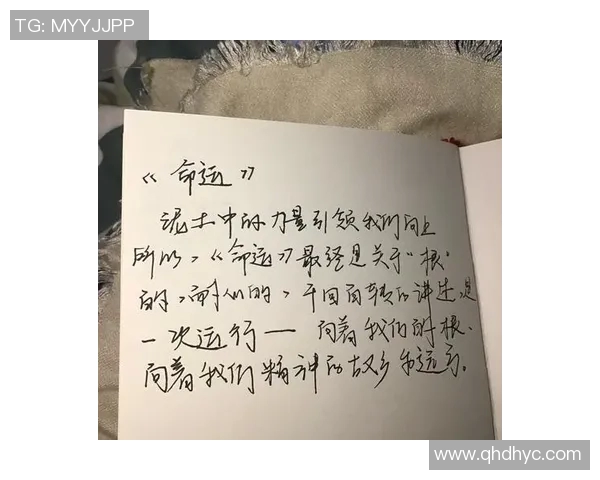 TG: MYYJJPP
《命运》
泥土中的力量引领我们向上
所以，《命运》最终是关于“根”
的，耐人的，千回百转的讲述，是
一次运行— 向着我们的根、
向着我们精神的故乡和远方。
www.qhdhyc.com